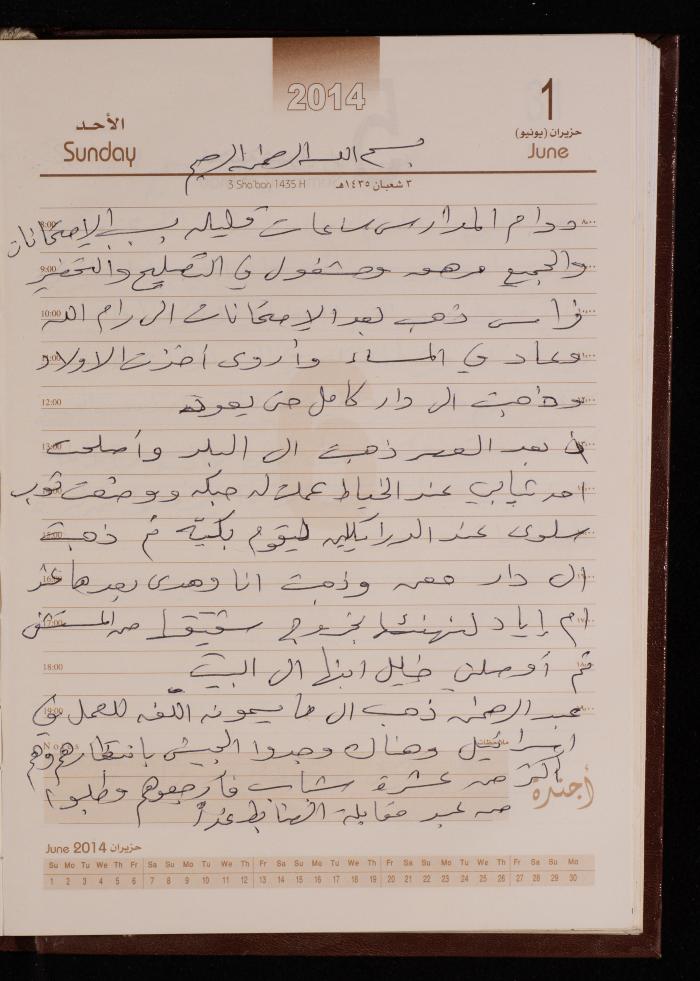 2014
الأحد
Sunday
1
حزيران (يونيو)
June
بسم الله الرحمن الرحيم
3 Sha'ban 1435 H
٣ شعبان ١٤٣٥هـ
دوام المدارس ساعات قليلة بسبب الامتحانات
والجميع مرهق ومشغول في التصليح والتحضير
فراس ذهب بعد الامتحانات الى رام الله
وعاد في المساء وأروى أخذت الاولاد
وذهبت الى دار كامل حتى يعود
بعد العصر ذهبت الى البلد وأصلحت
احد ثيابي عند الخياط عملت له حبكه ووضعت ثوب
سلوى عند الدرايكلين ليقوم بكيّه ثم ذهبت
الى دار وذهبت انا وهدى بعدها عند
ام إياد لنهنئها بخروج شقيقها من المستشفى
ثم أوصلني خليل ابنها الى البيت
عبد الرحمن ذهب الى ما يسمونه اللفه للعمل في
اسرائيل وهناك وجدوا الجيش بانتظارهم وهم
أكثر من عشرة شباب فأرجعوهم وطلبوا
من عبد مقابلة الضابط غداً
8:00
9:00
10:00
12:00
13:00
18:00
19:00
Notes
ملاحظات
أجندة
June 2014 حزيران
Su Mo Tu We Th Fr Sa Su Mo Tu We Th Fr Sa Su Mo Tu We Th Fr Sa Su Mo Tu We Th Fr Sa Su Mo
1 2 3 4 5 6 7 8 9 10 11 12 13 14 15 16 17 18 19 20 21 22 23 24 25 26 27 28 29 30